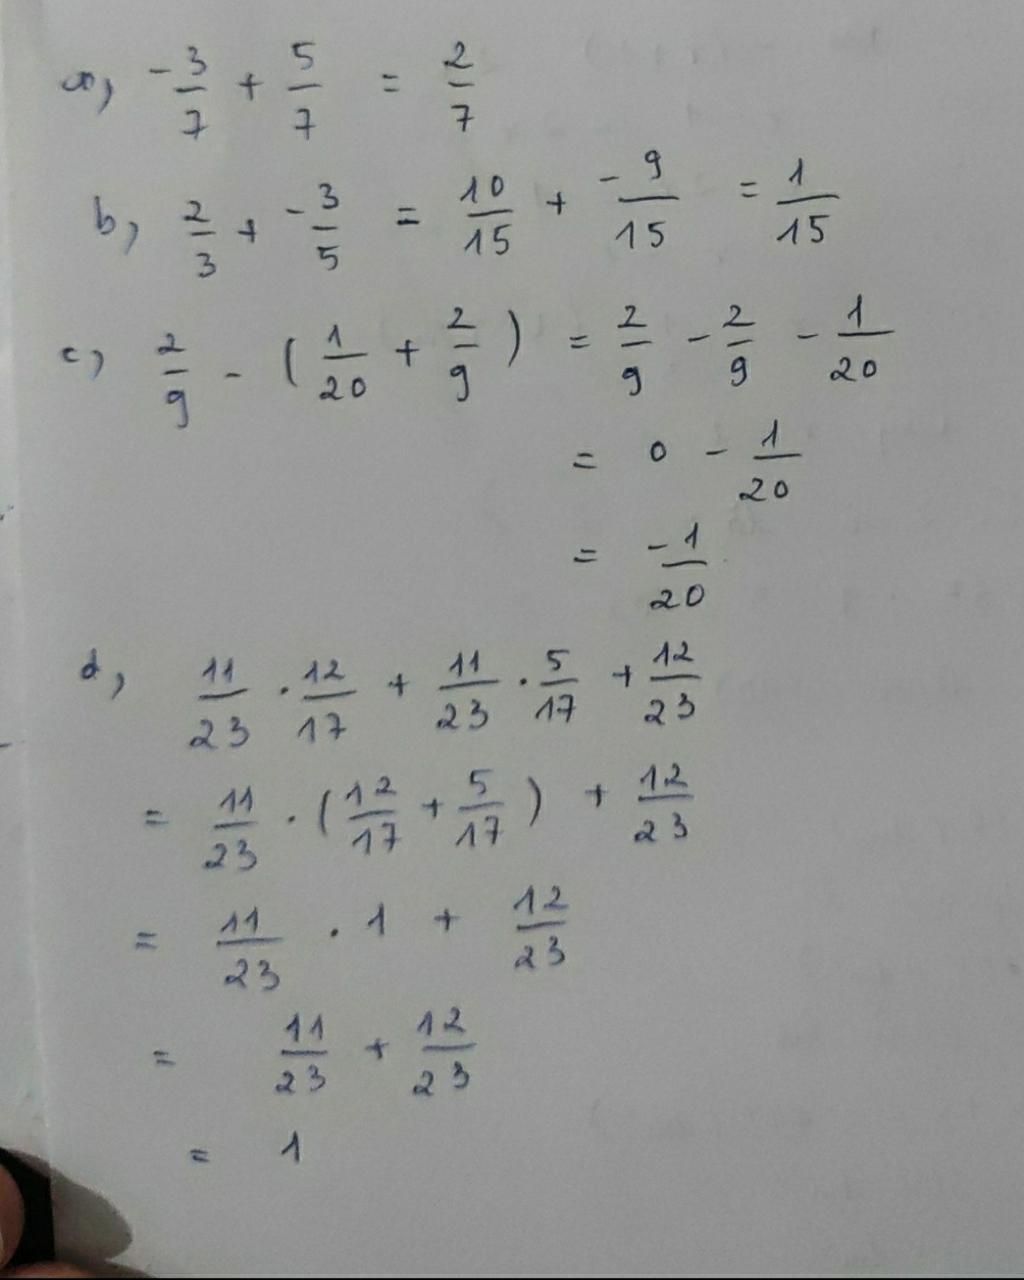 a, -3/7 + 5/7 = 2/7
b, 2/3 + -3/5 = 10/15 + -9/15 = 1/15
c, 2/9 - (1/20 + 2/9) = 2/9 - 2/9 - 1/20
= 0 - 1/20
= -1/20
d, 11/23 . 12/17 + 11/23 . 5/17 + 12/23
= 11/23 . (12/17 + 5/17) + 12/23
= 11/23 . 1 + 12/23
= 11/23 + 12/23
= 1